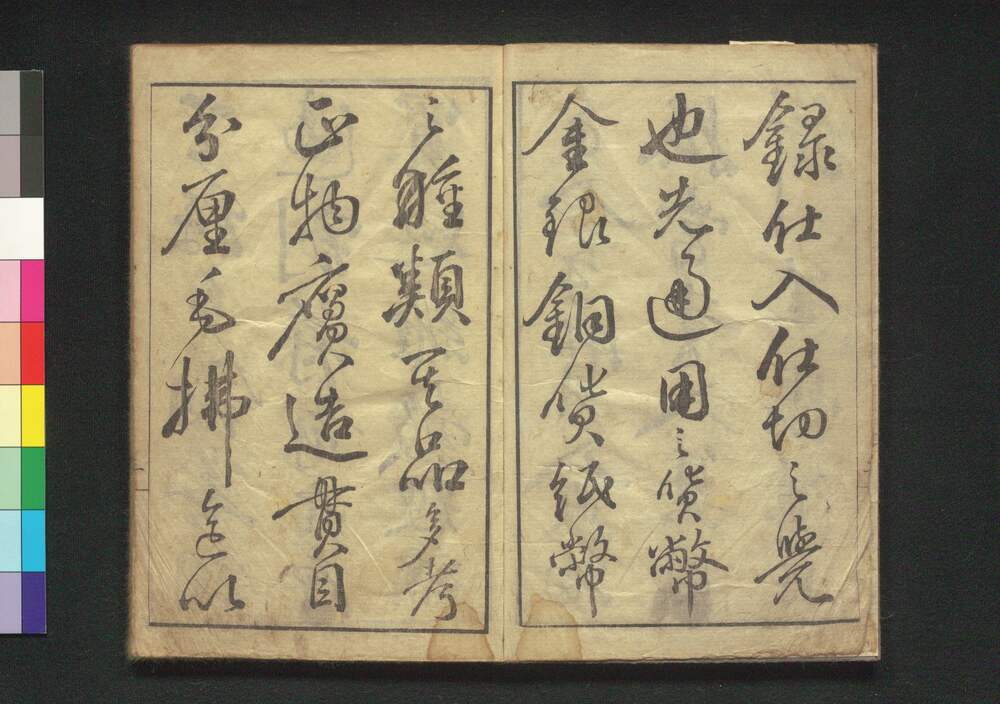 録仕入仕切之覺
也先通用之貨幣
金銀銅貨紙幣
之種類其品多考
正物贋造貫目
分厘毛拂迄以